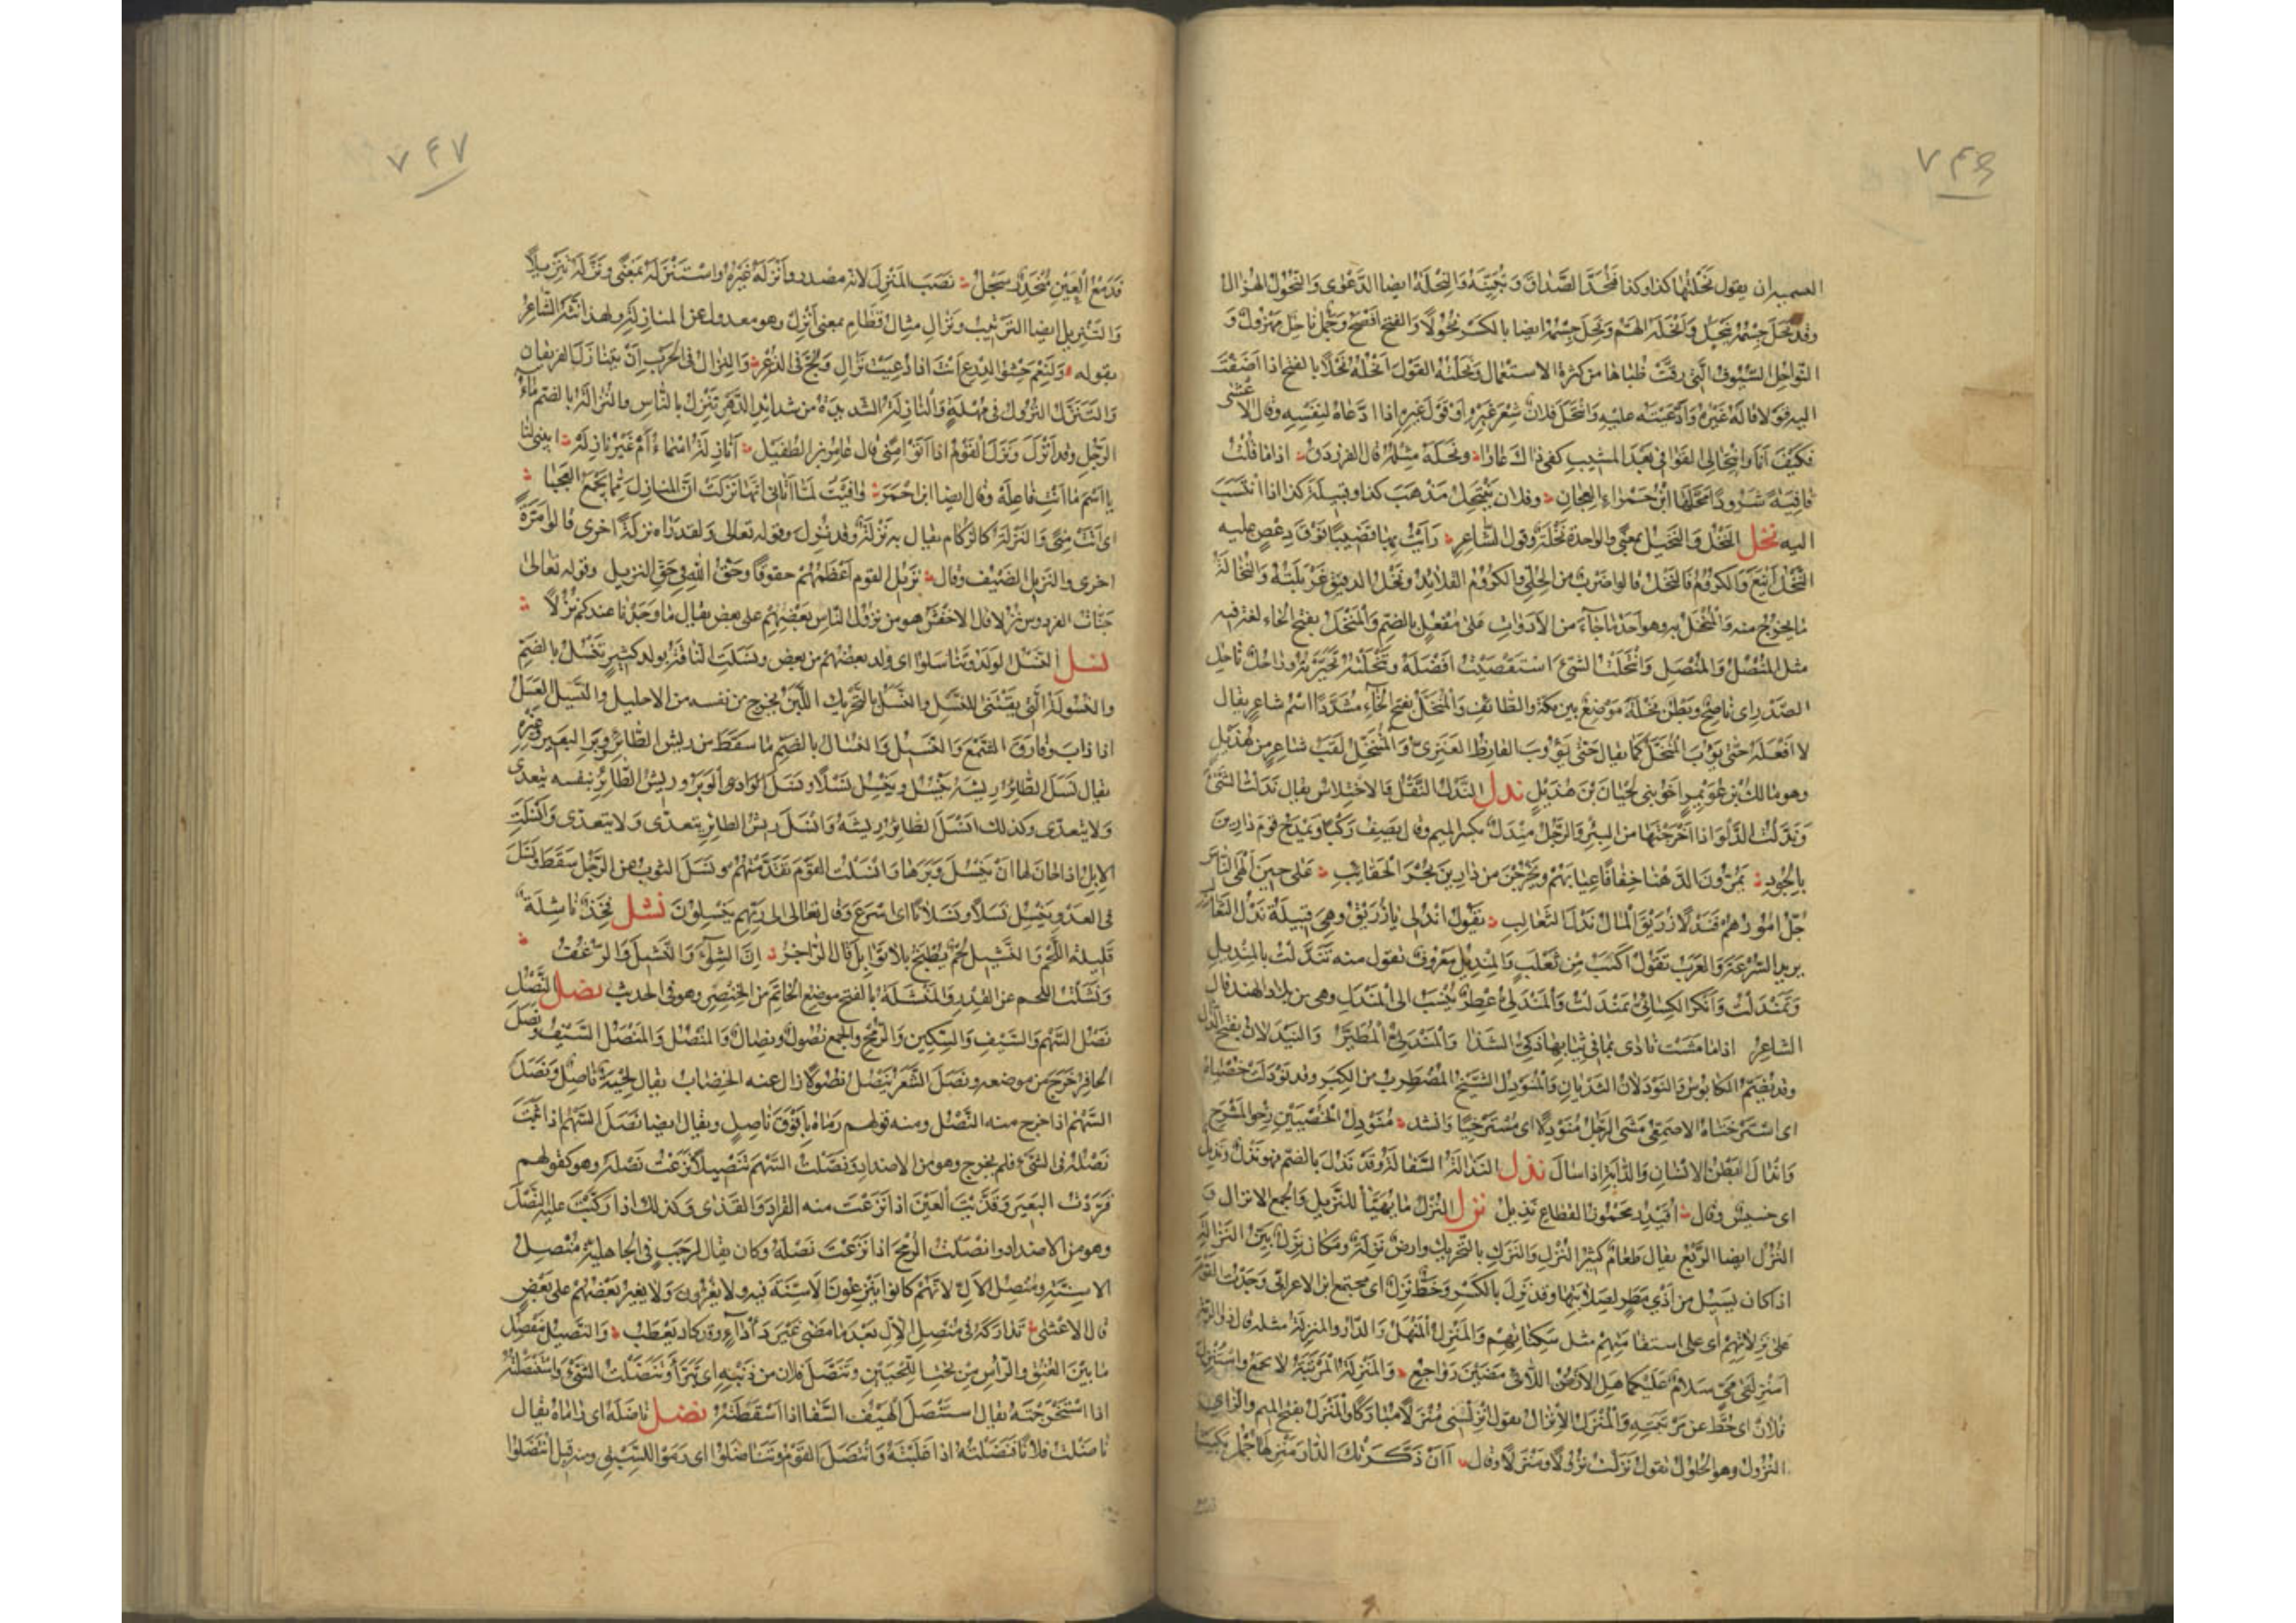 ٧٤٦
التسميه ان يقول نحلتها كذا وكذا فتحد الصداق وتبينه والنحلة ايضا الدعوى والنحول الهزال
وقد نحل جسمه ينحل وانحله الهم ونحل جسمه ايضا بالكسر نحولا والفتح افصح وجمل ناحل مهزول و
النواحل السيوف التى رقت ظباها من كثرة الاستعمال ونحلته القول انحله نحلا بالفتح اذا اضفت
اليه قولا قاله غيره وادعيته عليه وانتحل فلان شعر غيره او قول غيره اذا ادعاه لنفسه وقال الاعشى
فكيف انا وانتحالى القوافى بعد المشيب كفى ذاك عارا وتنحله مثله قال الفرزدق اذا ما قلت
قافية شرودا تنحلها ابن حمراء العجان وفلان ينتحل مذهب كذا وقبيلة كذا اذا انتسب
اليه نخل النخل والنخيل بمعنى والواحدة نخلة وقول الشاعر رأيت بها قضيبا فوق دعص عليه
النخل اينع والكروم فالنخل قالوا ضرب من الحلى والكروم القلائد ونخل الدقيق غربلته والنخالة
ما يخرج منه والمنخل به وهو احد ما جاء من الادوات على مفعل بالضم والمنخل بفتح الخاء لغة فيه
مثل المنصل والمنصل وانتخلت الشئ استقصيت افضله وتنخلته تخيرته ورجل ناخل
الصدر اى ناصح وبطن نخلة موضع بين مكة والطائف والمنخل بفتح الخاء مشددا اسم شاعر يقال
لا افعله حتى يؤوب المنخل كما يقال حتى يؤوب القارظ العنزى والمتنخل لقب شاعر من هذيل
وهو مالك بن عويمر اخو بنى لحيان بن هذيل ندل الندل النقل والاختلاس يقال ندلت الشئ
وندلت الدلو اذا اخرجتها من البئر والرجل مندل بكسر الميم وقال يصف ركبا ويمدح قوم دارين
بالجود يمرون بالدهنا خفافا عيابهم ويخرجن من دارين بجر الحقائب على حين الهى الناس
جل امورهم فندلا زريق المال ندل الثعالب يقول اندلى يا زريق وهى قبيلة ندل الثعالب
يريد السرعة والعرب تقول اكسب من ثعلب والمنديل معروف تقول منه تندلت بالمنديل
وتمندلت وانكر الكسائى تمندلت والمندلى عطر ينسب الى المندل وهى من بلاد الهند قال
الشاعر اذا ما مشت نادى بما فى ثيابها ذكى الشذا والمندلى المطير والنيدلان بفتح الدال
وقد يضم الكابوس والنودلان الثديان والمنودل الشيخ المضطرب من الكبر وقد نودلت خصياه
اى استرختا الاصمعى مشى الرجل منودلا اى مسترخيا وانشد منودل الخصيين رخو المشرج
واندال بطن الانسان والدابة اذا سال نذل النذالة السفالة وقد نذل بالضم فهو نذل ونذيل
اى خسيس وقال اقيدر محموز القطاع نذيل نزل النزل ما يهيأ للنزيل والجمع الانزال و
النزل ايضا الريع يقال طعام كثير النزل والنزل بالتحريك وارض نزلة ومكان نزل بين النزالة
اذا كان يسيل من ادنى مطر لصلابتها وقد نزل بالكسر وخط نزل اى مجتمع ابن الاعرابى وجدت القوم
على نزلاتهم اى على استقامتهم مثل سكناتهم والمنزل المنهل والدار والمنزلة مثله قال ذو الرمة
امنزلتى مى سلام عليكما هل الازمن اللائى مضين رواجع والمنزلة المرتبة لا تجمع واستنزل
فلان اى حط عن مرتبته والمنزل الانزال يقول انزلنى منزلا مباركا والمنزل بفتح الميم والزاى
النزول وهو الحلول تقول نزلت نزولا ومنزلا وقال أان ذكرتك الدار منزلها جمل بكيت
٧٤٧
فدمع العين منحدر سجل نصب المنزل لانه مصدر وانزله غيره واستنزله بمعنى ونزله تنزيلا
والتنزيل ايضا الترتيب ونزال مثال قطام بمعنى انزل وهو معدول عن المنازلة ولهذا انثه الشاعر
بقوله ولنعم حشو الدرع انت اذا دعيت نزال ولج فى الذعر والنزال فى الحرب ان يتنازل الفريقان
والتنزل النزول فى مهلة والنازلة الشديدة من شدائد الدهر تنزل بالناس والنزالة بالضم ماء
الرجل وقد انزل ونزل القوم اذا اتوا منى قال عامر بن الطفيل أنازلة اسماء ام غير نازلة ابينى لنا
يا اسم ما انت فاعله وقال ايضا ابن احمر وافيت لما اتانى انها نزلت ان المنازل مما يجمع العجبا
اى اتت منى والنزلة كالزكام يقال به نزلة وقد نزل وقوله تعالى ولقد رآه نزلة اخرى قالوا مرة
اخرى والنزيل الضيف وقال نزيل القوم اعظمهم حقوقا وحق الله فى حق النزيل وقوله تعالى
جنات الفردوس نزلا قال الاخفش هو من نزول الناس بعضهم على بعض يقال ما وجدنا عندكم نزلا
نسل النسل الولد وتناسلوا اى ولد بعضهم من بعض ونسلت الناقة بولد كثير تنسل بالضم
والنسولة التى يقتنى للنسل والنسل بالتحريك اللبن يخرج من نفسه من الاحليل والنسيل العسل
اذا ذاب وفارق الشمع والنسيل والنسال بالضم ما سقط من ريش الطائر ووبر البعير وغيره
يقال نسل الطائر ريشه ينسل وينسل نسلا ونسل الوبر وريش الطائر بنفسه يتعدى
ولا يتعدى وكذلك انسل الطائر ريشه وانسل ريش الطائر يتعدى ولا يتعدى وانسلت
الابل اذا حان لها ان ينسل وبرها وانسلت القوم تقدمتهم ونسل الثوب عن الرجل سقط ونسل
فى العدو ينسل نسلا ونسلانا اى اسرع وقال تعالى الى ربهم ينسلون نشل فخذ ناشلة
قليلة اللحم والنشيل لحم يطبخ بلا توابل قال الراجز ان الشواء والنشيل والرغف
ونشلت اللحم عن القدر والمنشلة بالفتح موضع الخاتم من الخنصر وهو فى الحديث نصل النصل
نصل السهم والسيف والسكين والرمح والجمع نصول ونصال والمنصل والمنصل السيف ونصل
الحافر خرج من موضعه ونصل الشعر ينصل نصولا زال عنه الخضاب يقال لحية ناصل ونصل
السهم اذا خرج منه النصل ومنه قولهم رماه بافوق ناصل ويقال ايضا نصل السهم اذا ثبت
نصله فى الشئ فلم يخرج وهو من الاضداد ونصلت السهم تنصيلا نزعت نصله وهو كقولهم
قردت البعير وقذيت العين اذا نزعت منه القراد والقذى وكذلك اذا ركبت عليه النصل
وهو من الاضداد وانصلت الرمح اذا نزعت نصله وكان يقال لرجب فى الجاهلية منصل
الاسنة ومنصل الال لانهم كانوا ينزعون الاسنة فيه ولا يغزون ولا يغير بعضهم على بعض
قال الاعشى تداركه فى منصل الال بعد ما مضى غير دأداء وقد كاد يعطب والنصيل مفصل
ما بين العنق والرأس من تحت اللحيين وتنصل فلان من ذنبه اى تبرأ وتنصلت الشئ واستنصلته
اذا استخرجته يقال استنصل الهيف السفا اذا اسقطته نضل ناضله اى راماه يقال
ناضلت فلانا فنضلته اذا غلبته وانتضل القوم وتناضلوا اى رموا للسبق ومنه قيل انتضلوا